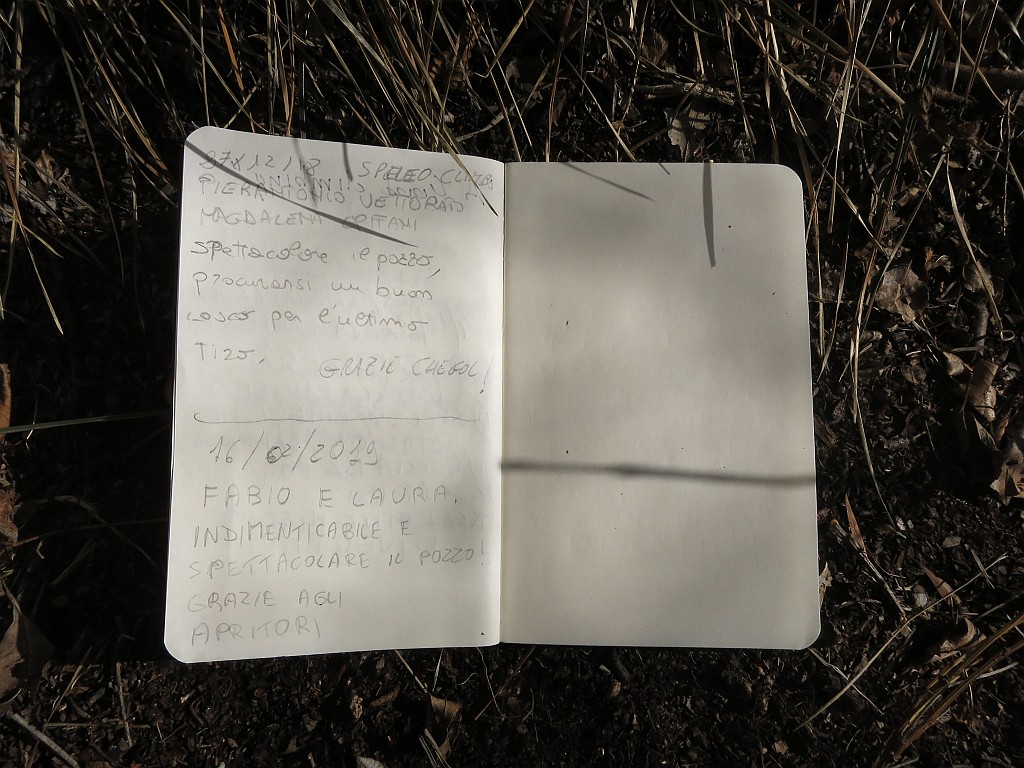 27/12/18 SPELEO
PIERANTONIO VETTORATO
MAGDALENA
Spettacolare il pozzo,
procurarsi un buon
casco per l'ultimo
Tiro.
GRAZIE CHEGOL!
16/02/2019
FABIO E LAURA.
INDIMENTICABILE E
SPETTACOLARE IL POZZO!
GRAZIE AGLI
APRITORI